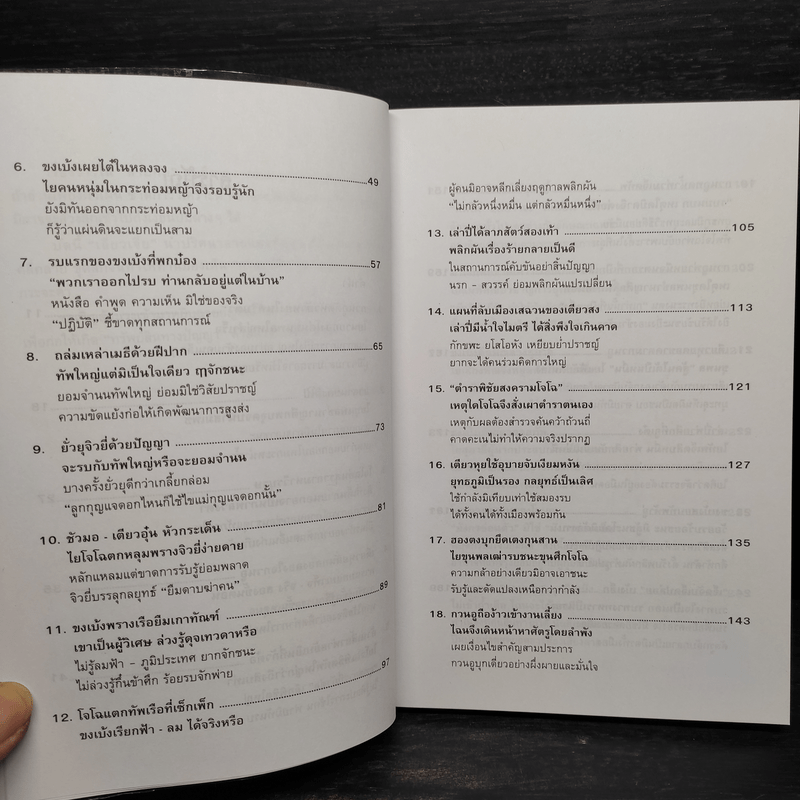 6. ขงเบ้งเผยไต๋ในหลงจง ........ 49
ไยคนหนุ่มในกระท่อมหญ้าจึงรอบรู้นัก
ยังมิทันออกจากกระท่อมหญ้า
ก็รู้ว่าแผ่นดินจะแยกเป็นสาม
7. รบแรกของขงเบ้งที่พกบ๋อง ........ 57
“พวกเราออกไปรบ ท่านกลับอยู่แต่ในบ้าน”
หนังสือ คำพูด ความเห็น มิใช่ของจริง
“ปฏิบัติ” ชี้ขาดทุกสถานการณ์
8. ถล่มเหล่าเมธีด้วยฝีปาก ........ 65
ทัพใหญ่แต่มิเป็นใจเดียว ฤๅจักชนะ
ยอมจำนนทัพใหญ่ ย่อมมิใช่วิสัยปราชญ์
ความขัดแย้งก่อให้เกิดพัฒนาการสูงส่ง
9. ยั่วยุจิวยี่ด้วยปัญญา ........ 73
จะรบกับทัพใหญ่หรือจะยอมจำนน
บางครั้งยั่วยุดีกว่าเกลี้ยกล่อม
“ลูกกุญแจดอกไหนก็ใช้ไขแม่กุญแจดอกนั้น”
10. ชัวมอ - เตียวอุ๋น หัวกระเด็น ........ 81
ไยโจโฉตกหลุมพรางจิวยี่ง่ายดาย
หลักแหลมแต่ขาดการรับรู้ย่อมพลาด
จิวยี่บรรลุกลยุทธ์ “ยืมดาบฆ่าคน”
11. ขงเบ้งพรางเรือยืมเกาทัณฑ์ ........ 89
เขาเป็นผู้วิเศษ ล่วงรู้ดุจเทวดาหรือ
ไม่รู้ลมฟ้า - ภูมิประเทศ ยากจักชนะ
ไม่ล่วงรู้กึ๋นข้าศึก ร้อยรบจักพ่าย
12. โจโฉแตกทัพเรือที่เซ็กเพ็ก ........ 97
ขงเบ้งเรียกฟ้า - ลม ได้จริงหรือ
ผู้คนมิอาจหลีกเลี่ยงฤดูกาลพลิกผัน
“ไม่กลัวหนึ่งหมื่น แต่กลัวหมื่นหนึ่ง”
13. เล่าปี่ได้ลาภสัตว์สองเท้า ........ 105
พลิกผันเรื่องร้ายกลายเป็นดี
ในสถานการณ์คับขันอย่าสิ้นปัญญา
นรก - สวรรค์ ย่อมพลิกผันแปรเปลี่ยน
14. แผนที่ลับเมืองเสฉวนของเตียวสง ........ 113
เล่าปี่มีน้ำใจไมตรี ได้สิ่งพึงใจเกินคาด
กักขพะ ยโสโอหัง เหยียบย่ำปราชญ์
ยากจะได้คนร่วมคิดการใหญ่
15. “ตำราพิชัยสงครามโจโฉ” ........ 121
เหตุใดโจโฉจึงสั่งเผาตำราตนเอง
เหตุกับผลต้องสำรวจค้นคว้าถ้วนถี่
คาดคะเนไม่ทำให้ความจริงปรากฏ
16. เตียวหุยใช้อุบายจับเงียมหงัน ........ 127
ยุทธภูมิเป็นรอง กลยุทธ์เป็นเลิศ
ใช้กำลังมิเทียบเท่าใช้สมองรบ
ได้ทั้งคนได้ทั้งเมืองพร้อมกัน
17. ฮองตงบุกยึดเตงกุนสาน ........ 135
ไยขุนพลเฒ่ารบชนะขุนศึกโจโฉ
ความกล้าอย่างเดียวมิอาจเอาชนะ
รับรู้และดัดแปลงเหนือกว่ากำลัง
18. กวนอูถือง้าวเข้างานเลี้ยง ........ 143
ไฉนจึงเดินหน้าหาศัตรูโดยลำพัง
เผยเงื่อนไขสำคัญสามประการ
กวนอูบุกเดี่ยวอย่างผึ่งผายและมั่นใจ